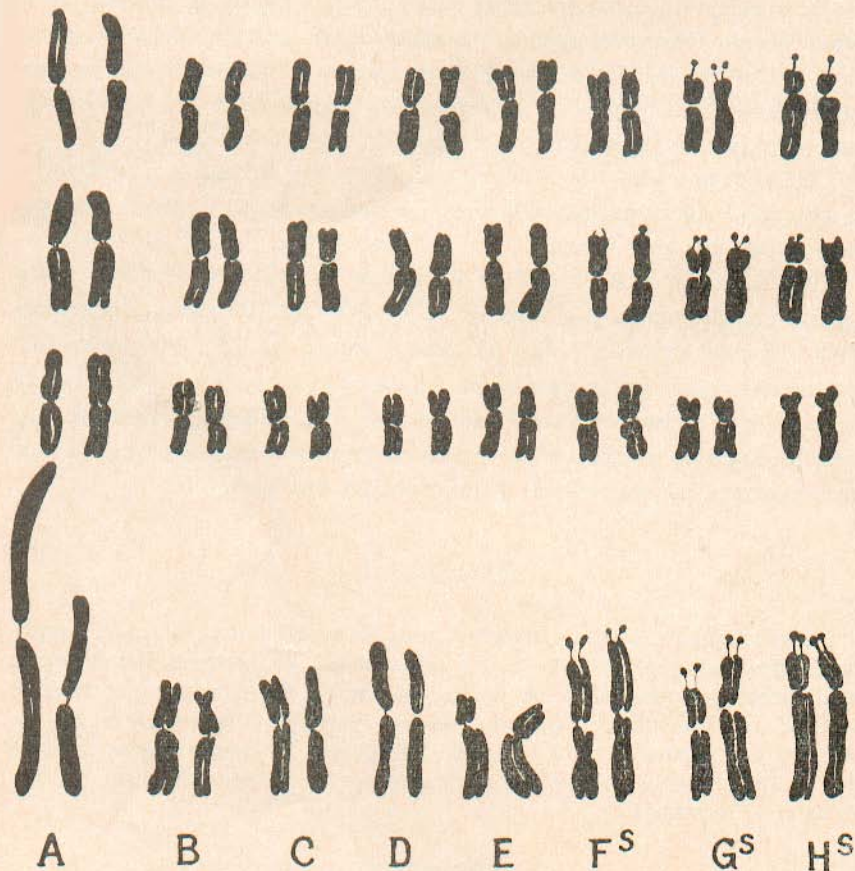 A B C D E Fˢ Gˢ Hˢ